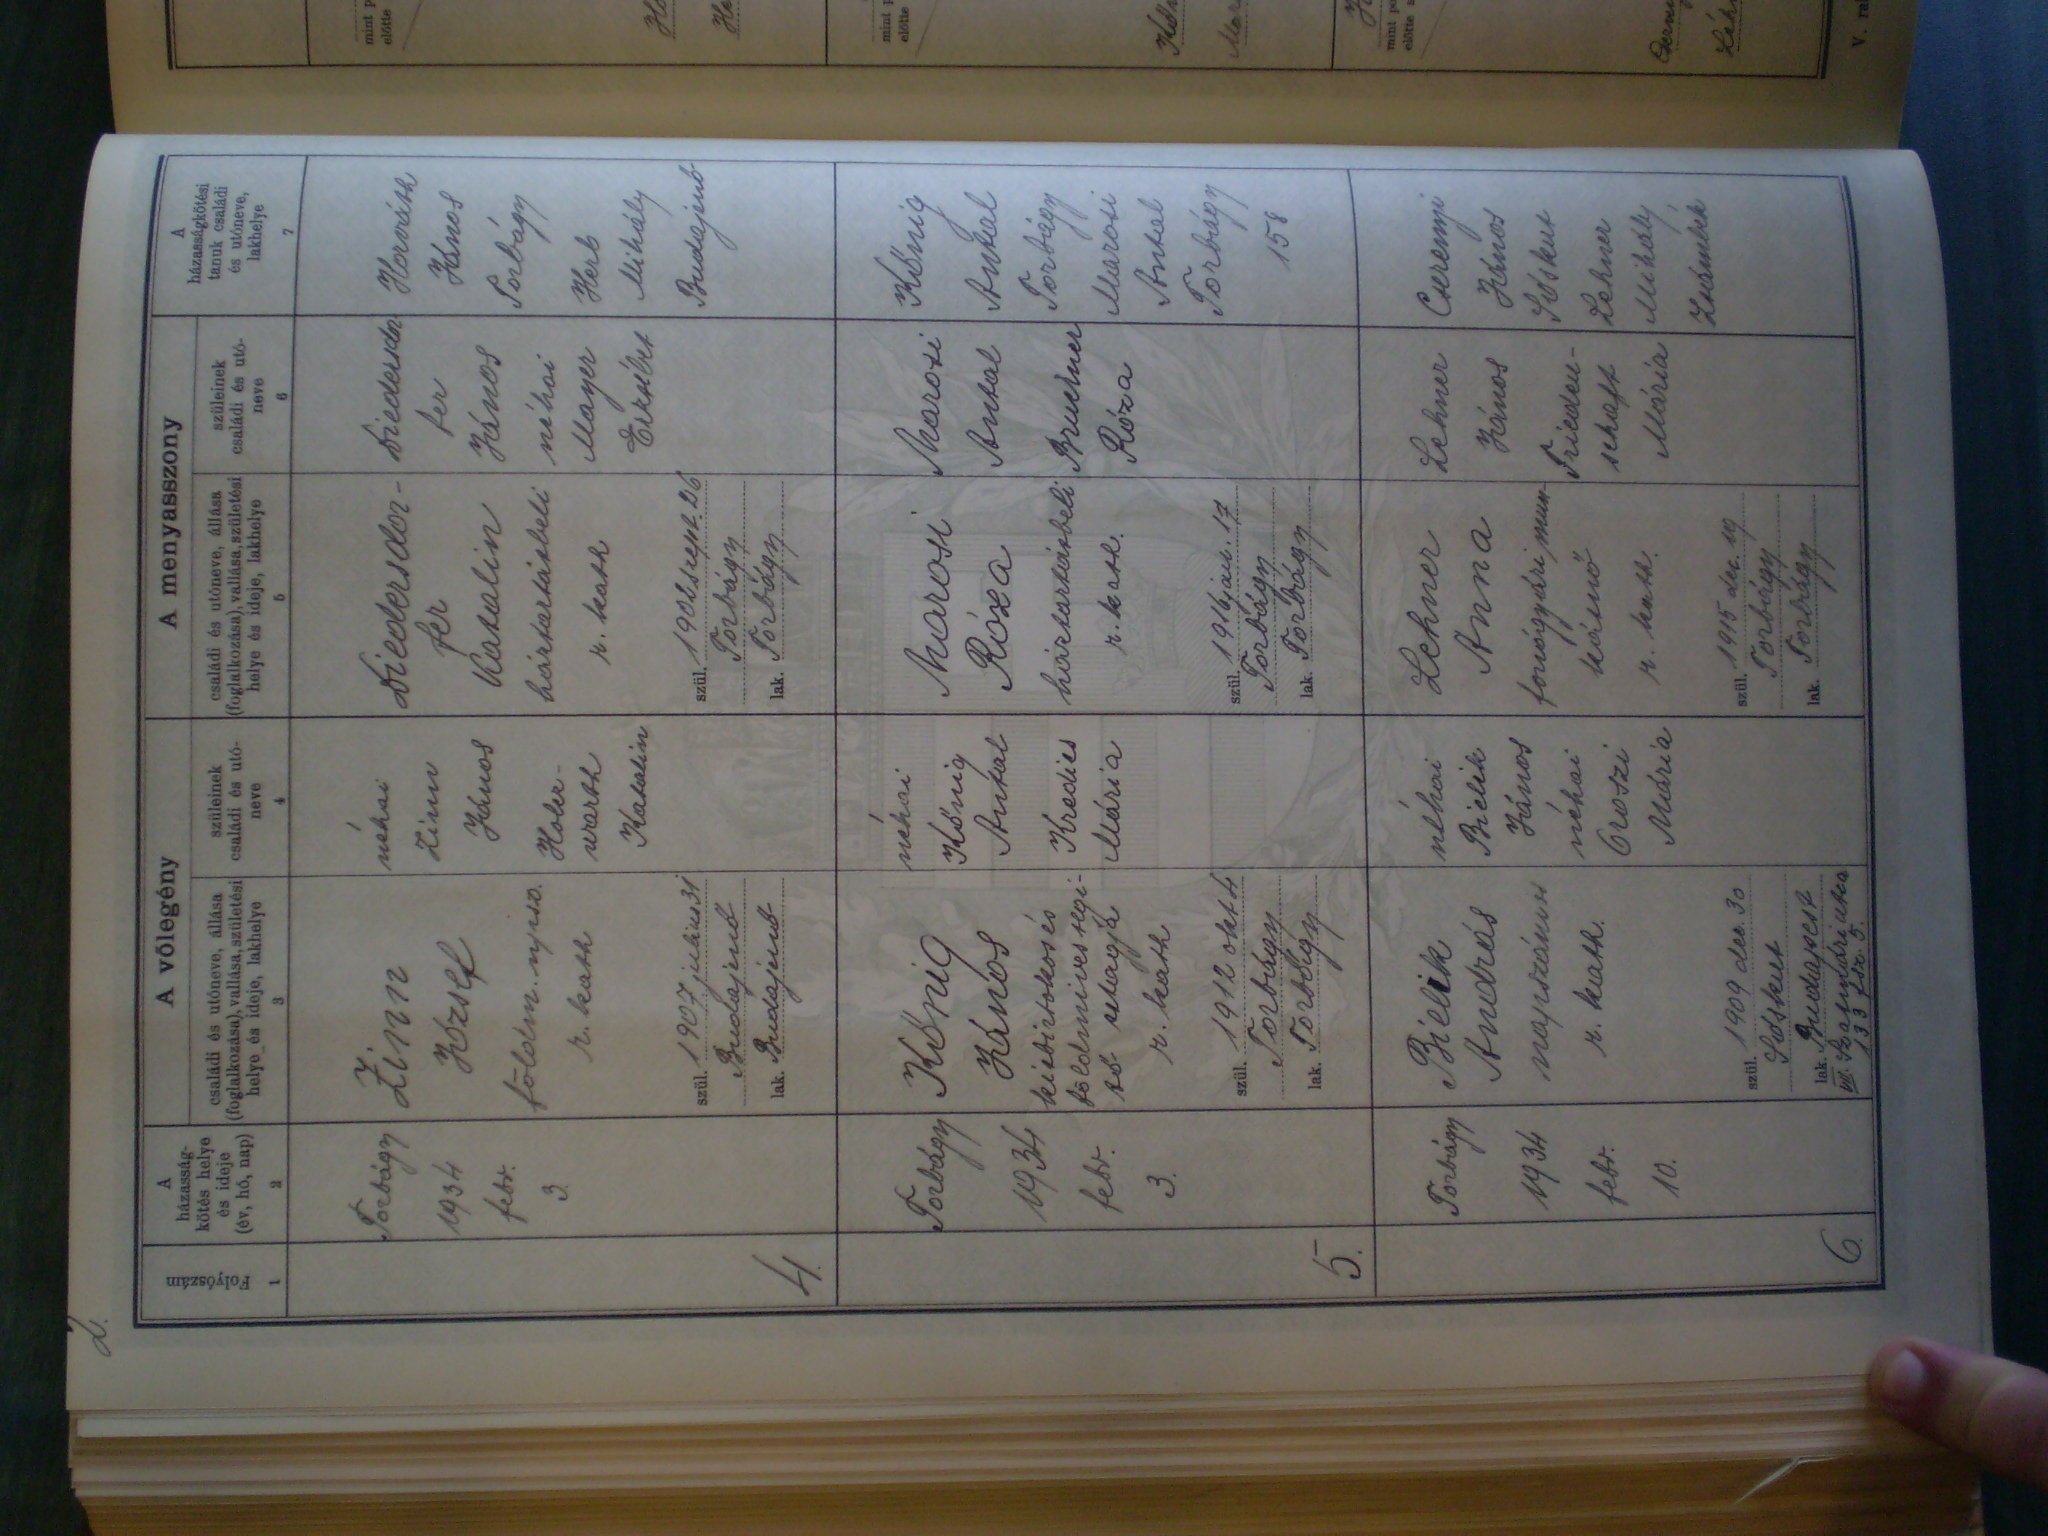 2.
Folyószám
1
A
házasság-
kötés helye
és ideje
(év, hó, nap)
2
A vőlegény
családi és utóneve, állása
(foglalkozása), vallása, születési
helye és ideje, lakhelye
3
szüleinek
családi és utó-
neve
4
A menyasszony
családi és utóneve, állása
(foglalkozása), vallása, születési
helye és ideje, lakhelye
5
szüleinek
családi és utó-
neve
6
A
házasságkötési
tanuk családi
és utóneve,
lakhelye
7
4.
Torbágy
1934
febr.
3.
Zinn
József
földm. npsz.
r. kath
szül. 1907 julius 31
Budajenő
lak. Budajenő
néhai
Zinn
János
Hober-
Katalin
Diedersdor-
fer
Katalin
háztartásbeli
r. kath
szül. 1908 szept. 26
Torbágy
lak. Torbágy
Diedersdor
fer
János
néhai
Mayer
Erzsébet
Horváth
János
Torbágy
Herb
Mihály
Budajenő
5.
Torbágy
1934
febr.
3.
König
János
kisbirtokos és
földmives segi-
tő
r. kath
szül. 1912 okt 4
Torbágy
lak. Torbágy
néhai
König
Antal
Kredics
Mária
Marosi
Róza
háztartásbeli
r. kath.
szül. 1916 jan. 17
Torbágy
lak. Torbágy
Marosi
Antal
Bruckner
Róza
König
Antal
Torbágy
Marosi
Antal
Torbágy
158
6.
Torbágy
1934
febr.
10.
Bielik
András
napszámos
r. kath.
szül. 1909 dec. 30
Sóskut
lak. Budapest
VII. utca
133 fsz. 5.
néhai
Bielik
János
néhai
Oroszi
Mária
Lehner
Anna
fonógyári mun-
kásnő
r. kath.
szül. 1915 dec. 19
Torbágy
lak. Torbágy
Lehner
János
Frieden-
schaft
Mária
Cserenyi
János
Sóskut
Lehner
Mihály
Zsámbék
mint
előtte
mint
előtte
mint
előtte
V.